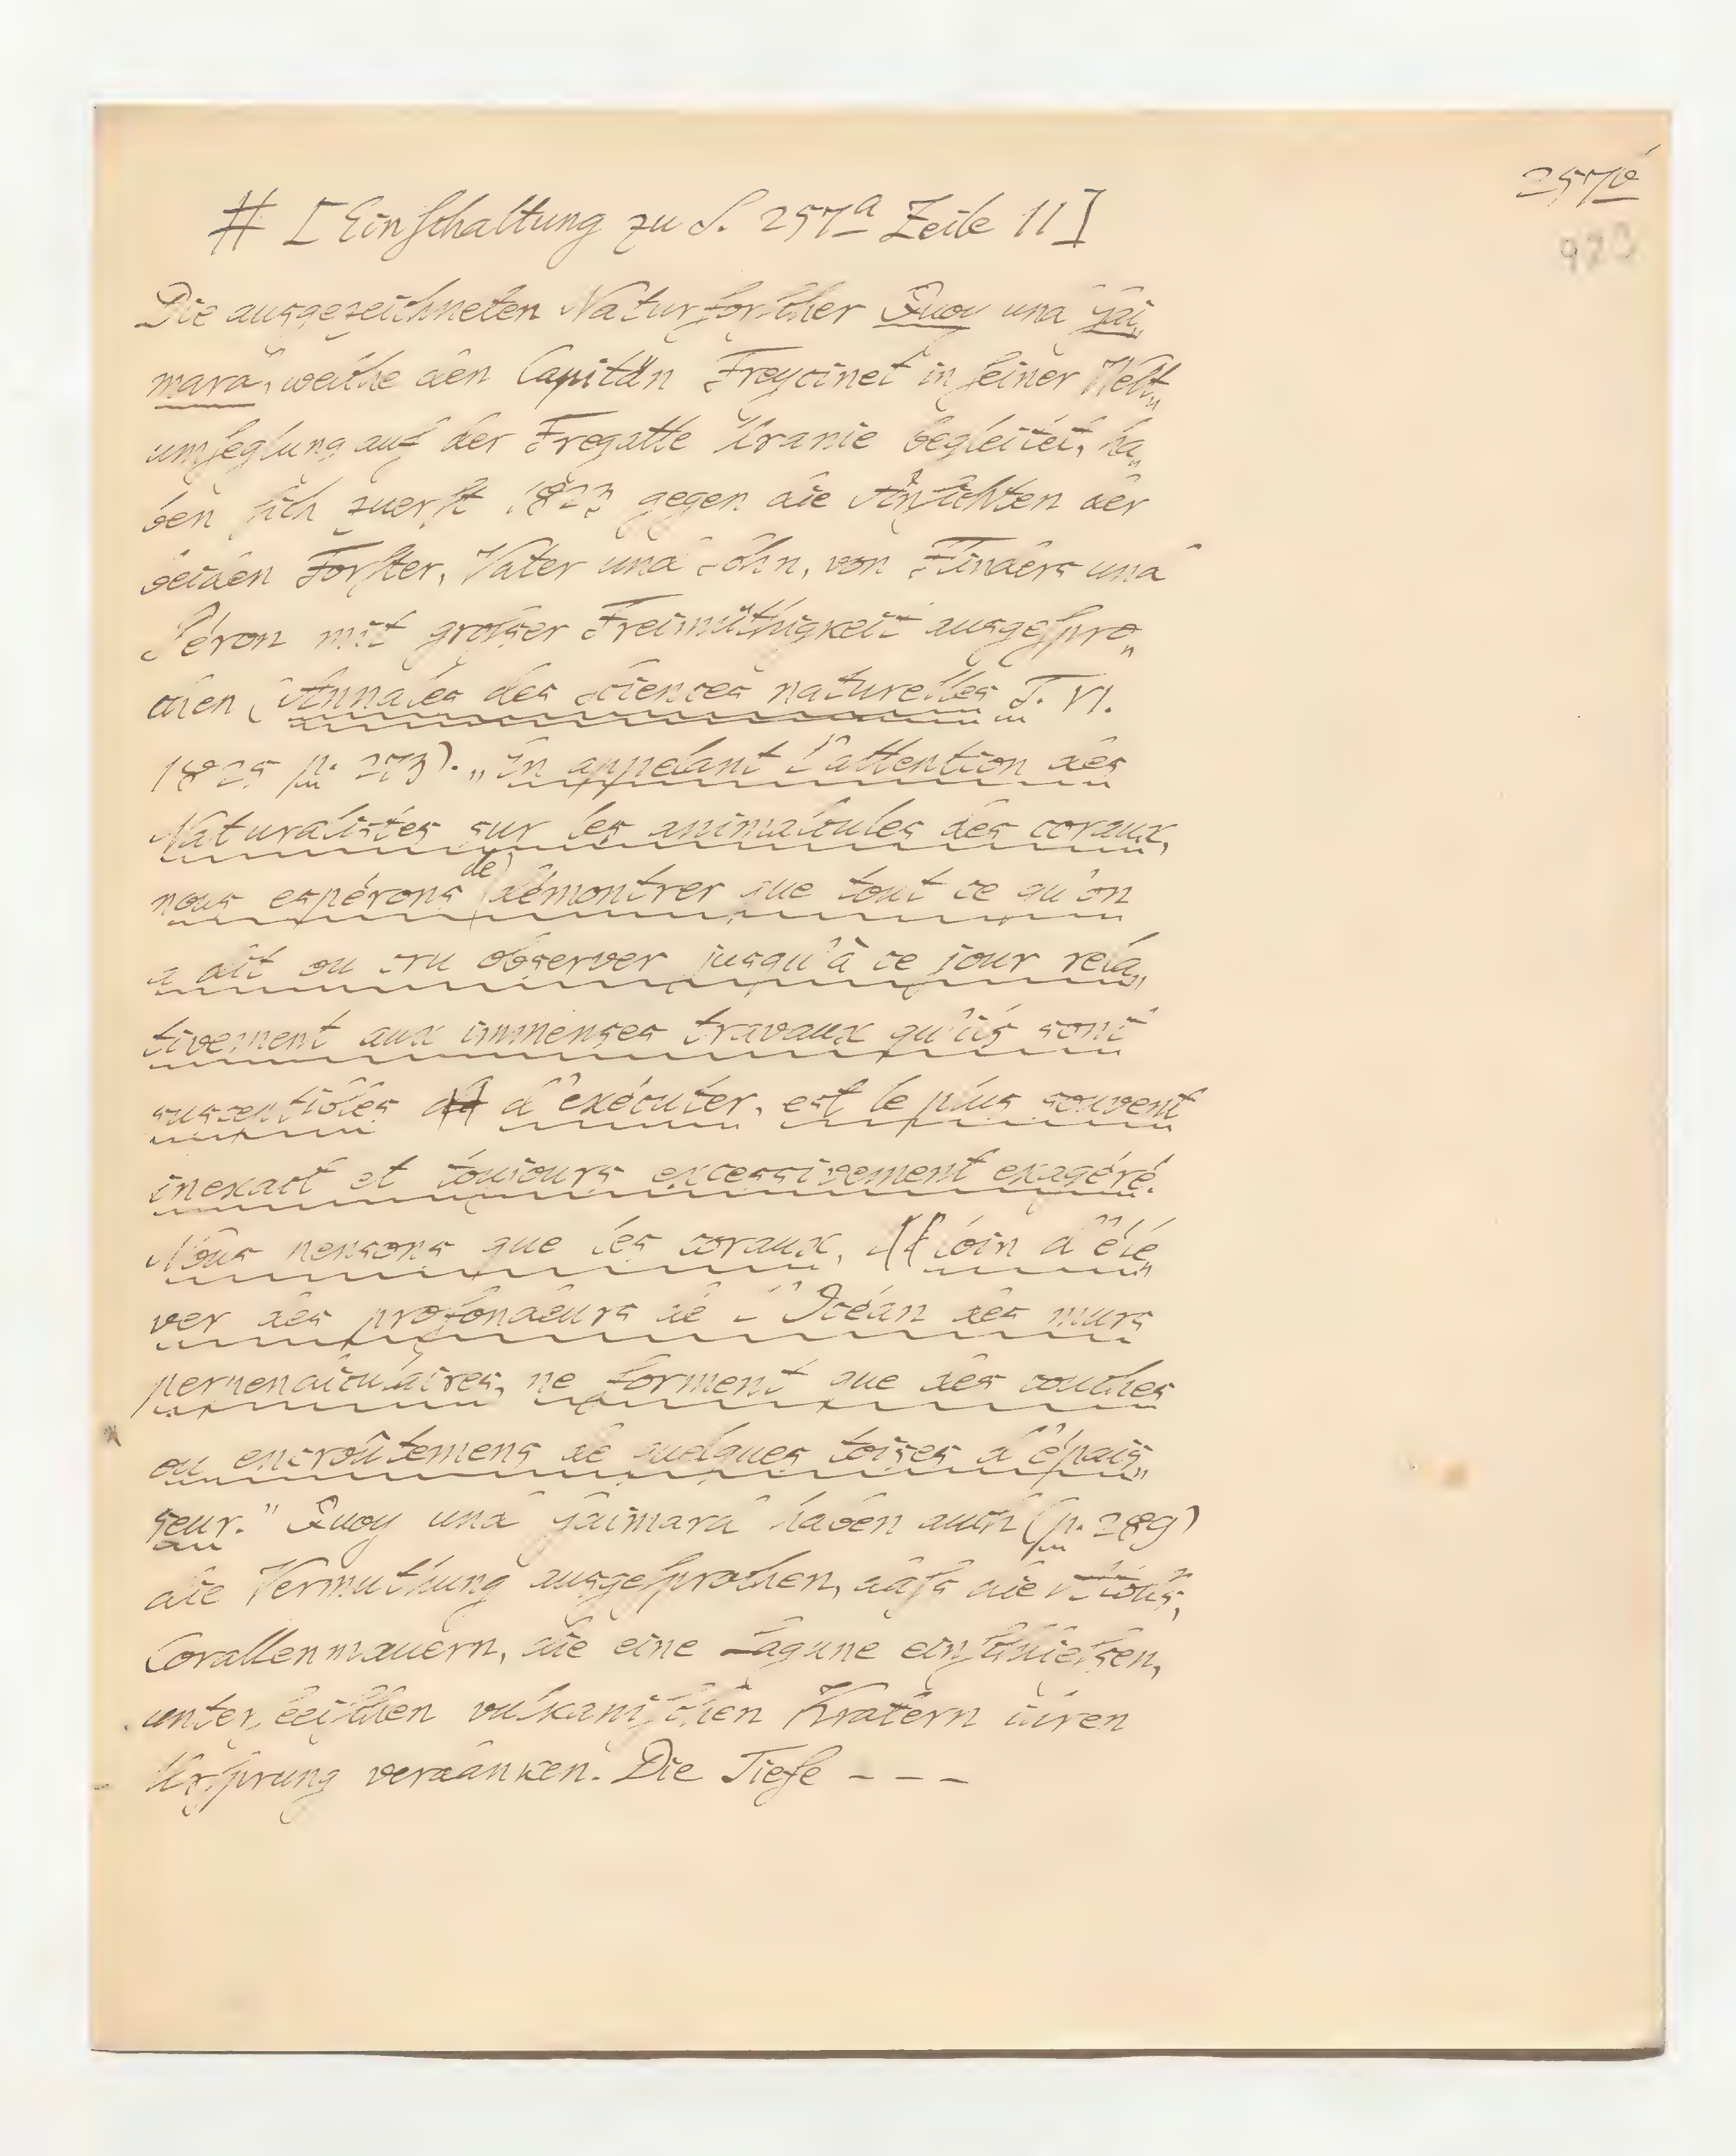 257b
923
# [Einschaltung zu S. 257a Zeile 11]
Die ausgezeichneten Naturforscher Quoy und Gai„
mard, welche den Capitän Freycinet in seiner Welt„
umseglung auf der Fregatte Uranie begleitet, ha„
ben sich zuerst 1823 gegen die Ansichten der
beiden Forster, Vater und Sohn, von Flinders und
Péron mit großer Freimüthigkeit ausgespro„
chen (Annales des Sciences naturelles T. VI.
1825 p. 273). „En appelant l'attention des
Naturalistes sur les animalcules des coraux,
nous espérons de démontrer que tout ce qu'on
a dit ou cru observer jusqu'à ce jour rela„
tivement aux immenses travaux qu'ils sont
susceptibles d'exécuter, est le plus souvent
inexact et toujours excessivement exagéré.
Nous pensons que les coraux, loin d'éle„
ver des profondeurs de l'Océan des murs
perpendiculaires, ne forment que des couches
ou encroûtemens de quelques toises d'épais„
seur." Quoy und Gaimard haben auch (p. 289)
die Vermuthung ausgesprochen, daſs die Atolls,
Corallenmauern, die eine Lagune einschließen,
unterseeischen vulkanischen Kratern ihren
Ursprung verdanken. Die Tiefe – – –